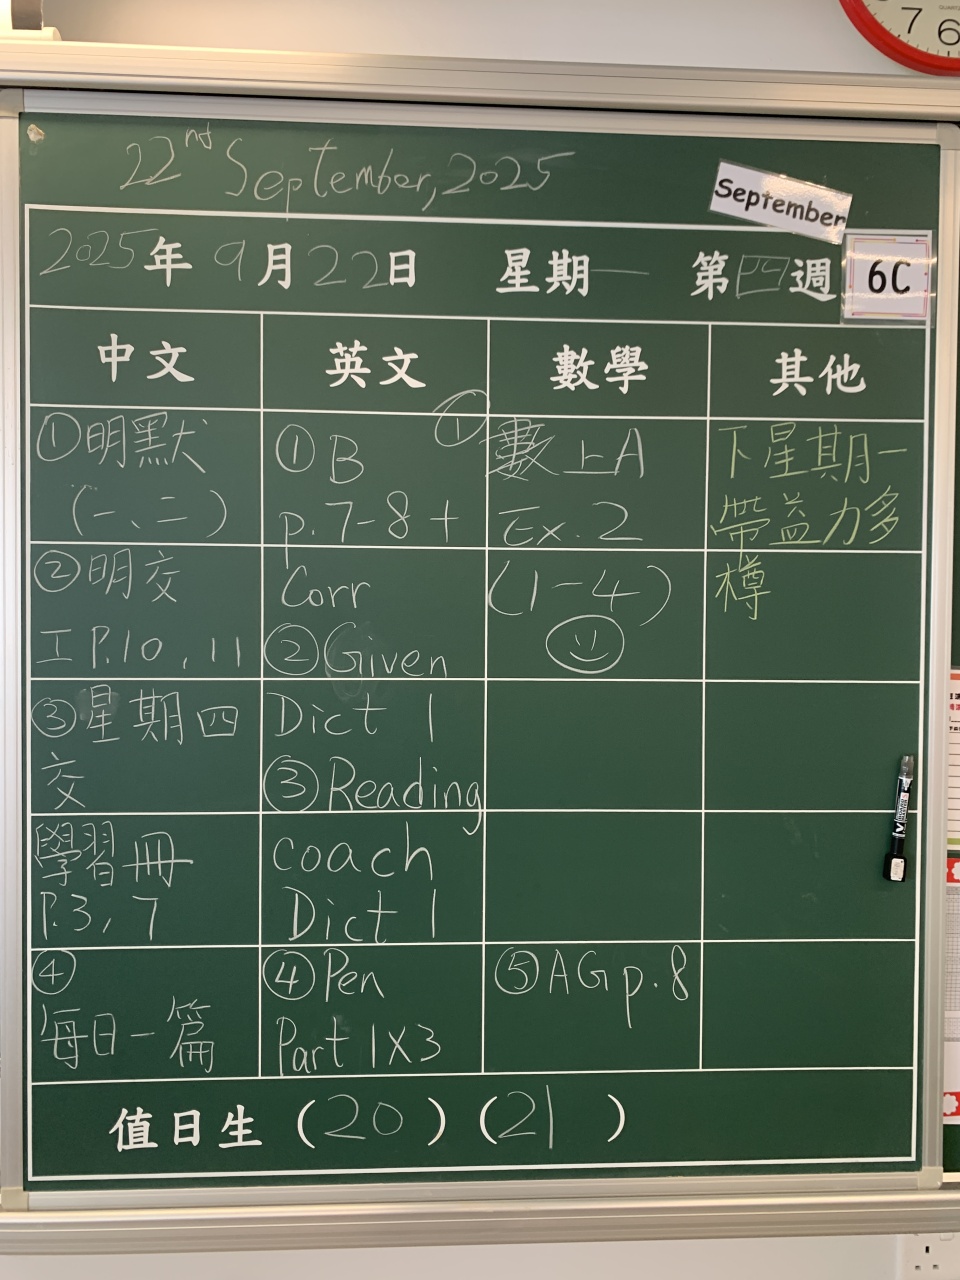 7 6
22nd September, 2025
September
2025年9月22日 星期一 第四週
6C
中文 英文 數學 其他
①明默
(一、二)
②明交
工P.10, 11
③星期四
交
學習冊
P.3, 7
④
每日一篇
①B
p.7-8+
Corr
②Given
Dict 1
③Reading
coach
Dict 1
④Pen
Part 1x3
①數上A
Ex.2
(1-4)
⑤AG p.8
下星期一
帶益力多
樽
值日生 (20) (21)